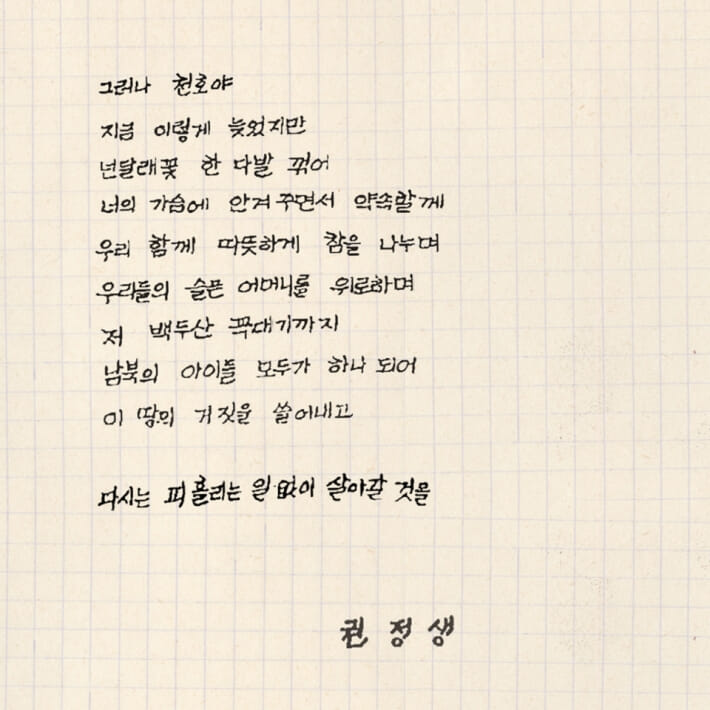 그러나 천호야
지금 이렇게 늦었지만
넌달래꽃 한 다발 꺾어
너의 가슴에 안겨 주면서 약속할게
우리 함께 따뜻하게 참을 나누며
우리들의 슬픈 어머니를 위로하며
저 백두산 꼭대기까지
남북의 아이들 모두가 하나 되어
이 땅의 거짓을 쓸어내고
다시는 피 흘리는 일 없이 살아갈 것을
권정생